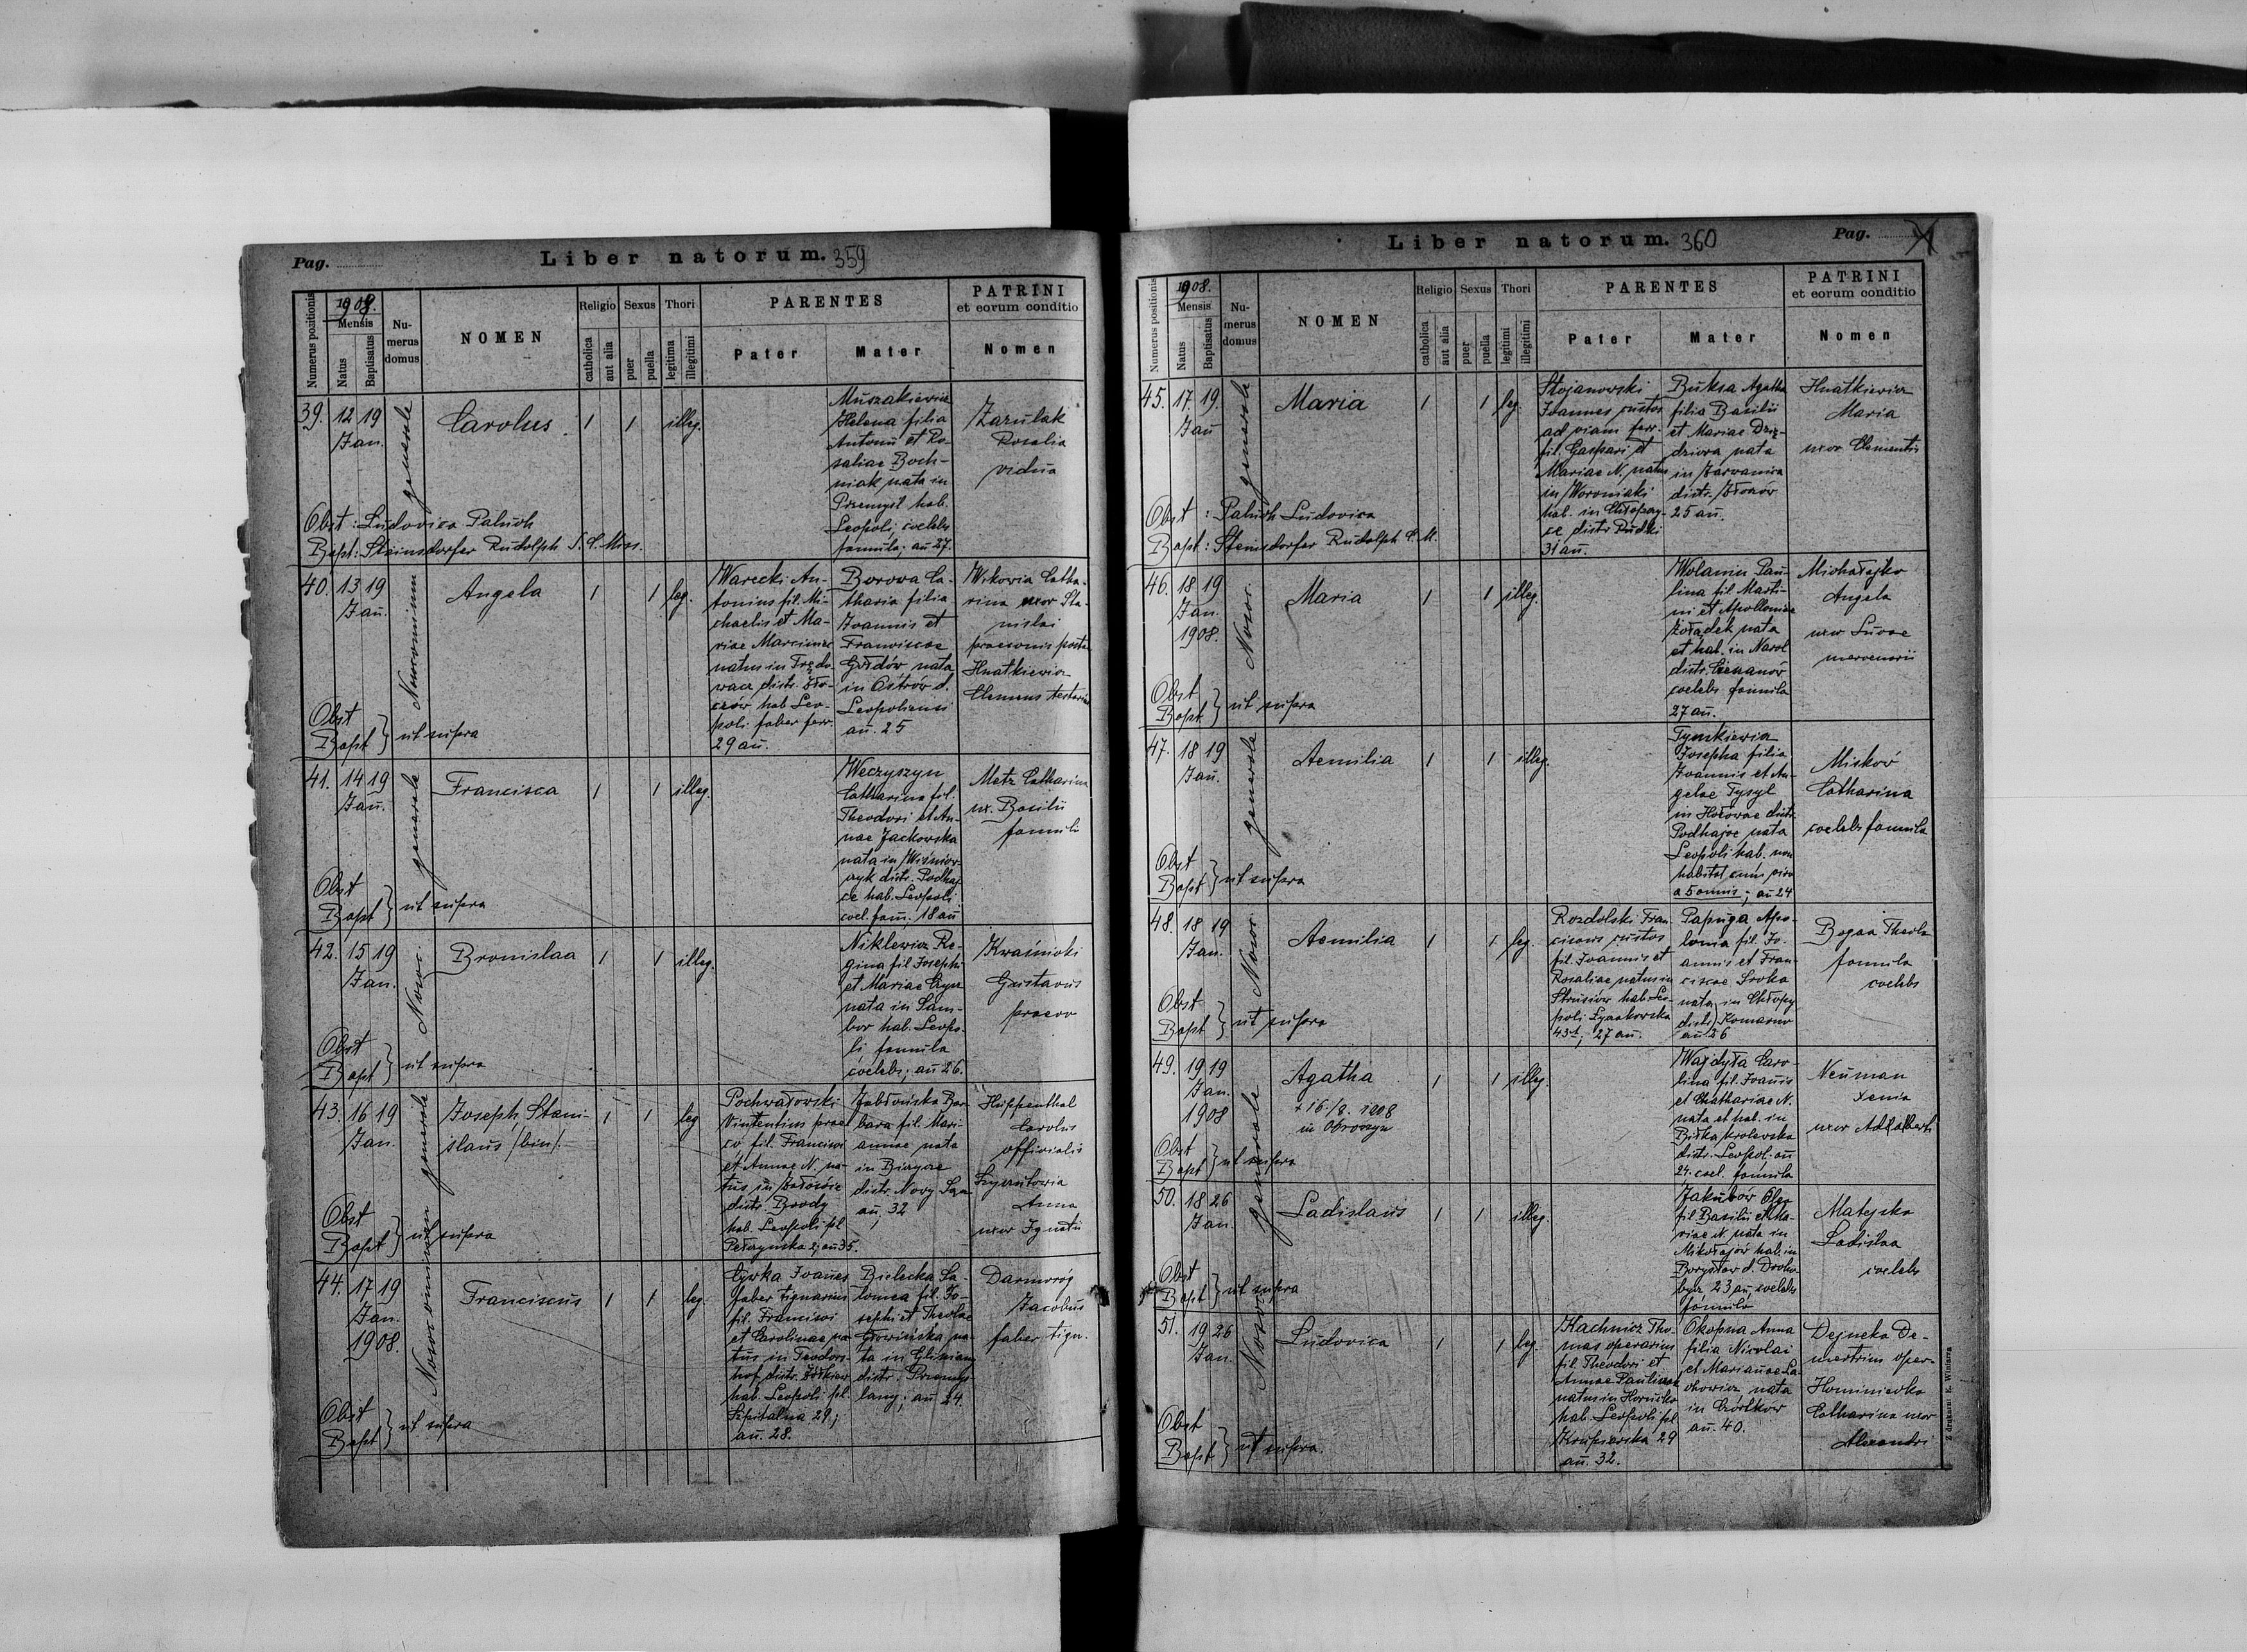 Pag.
Liber natorum. 359
Numerus positionis
1908.
Mensis
Natus
Baptisatus
Nu-
merus
domus
NOMEN
Religio
catholica
aut alia
Sexus
puer
puella
Thori
legitima
illegitimi
PARENTES
Pater
Mater
PATRINI
et eorum conditio
Nomen
39. 12 19
Jan.
generale
Carolus
1
1
illeg.
Muszakiewicz
Helena filia
Antonii et Ro-
saliae Boch-
niak nata in
Przemysl hab.
Leopoli coelebs
famula; añ 27.
Zarulak
Rosalia
vidua
Obst: Ludovica Paluch
Bapt: Steinsdorfer Rudolph S. C. Miss.
40. 13 19
Jañ.
Angela
1
1
leg.
Warecki An-
tonius fil. Mi-
chaelis et Ma-
riae
natus in
distr. Zło-
czów hab. Leo-
poli faber ferr.
29 añ.
Borowa Ca-
tharia filia
Joannis et
Franciscae
Gwłdów nata
in Ostrów d.
Leopoliensi
añ. 25
Catha-
rina uxor Sta-
nislai
Hnatkiewicz
Clemens
Obst
Bapt } ut supra
41. 14 19
Jañ.
generale
Francisca
1
1
illeg.
Weczyszyn
Catharina fil.
Theodori et An-
nae Jackowska
nata in Wiśniow-
czyk distr. Podhaj-
ce hab. Leopoli
coel. fam. 18 añ
Metz Catharina
ux. Basilii
famuli
Obst
Bapt } ut supra
42. 15 19
Jan.
Nosoc.
Bronislaa
1
1
illeg.
Niklewicz Re-
gina fil Josephi
et Mariae
nata in Sam-
bor hab. Leopo-
li famula
coelebs; añ 26.
Kwaśnicki
Gustavus
praeco
Obst
Bapt } ut supra
43. 16 19
Jan.
generale
Joseph, Stani-
slaus /bin/.
1
1
leg
Pochwałowski
Vintentius prae-
co fil. Francisci
et Annae N. na-
tus in Załośce
distr. Brody
hab. Leopoli pl.
Pełczynska 2; añ 35.
Jabłońska Bar-
bara fil. Mari-
annae nata
in Biczyce
distr. Nowy Sącz
añ, 32
Huppenthal
Carolus
officialis
Anna
uxor Ignatii
Obst
Bapt } ut supra
44. 17 19
Jan.
1908.
Franciscus
1
1
leg.
Cywka Joañes
faber tignarius
fil. Francisci
et Carolinae na-
tus in Teodors-
hof distr. Żółkiew
hab. Leopoli pl.
Szpitalna 29;
añ. 28.
Bielecka Sa-
lomea fil. Jo-
sephi et Theclae
Głowińska na-
ta in Gliniany
distr. Przemyś-
lany; añ. 24.
Darmoróg
Jacobus
faber tign.
Obst
Bapt } ut supra
Liber natorum. 360
Pag.
Numerus positionis
1908.
Mensis
Natus
Baptisatus
Nu-
merus
domus
NOMEN
Religio
catholica
aut alia
Sexus
puer
puella
Thori
legitimi
illegitimi
PARENTES
Pater
Mater
PATRINI
et eorum conditio
Nomen
45. 17. 19.
Jañ
generale
Maria
1
1
leg.
Stojanowski
Joannes custos
ad viam ferr.
fil. Gaspari et
Mariae N. natus
in Woroniaki
hab. in Chłopczy-
ce distr. Rudki
31 añ.
Buksa Agatha
filia Basilii
et Mariae Dzię-
dziora nata
in Zarwanica
distr. Złoczów
25 añ.
Hnatkiewicz
Maria
uxor Clementis
Obst: Paluch Ludovica
Bapt: Steinsdorfer Rudolph C. M.
46. 18 19
Jan.
1908.
Nosoc.
Maria
1
1
illeg.
Wolanin Pau-
lina fil Marti-
ni et Apolloniae
Żołądek nata
et hab. in Narol
distr. Cieszanów
coelebs famula
27 añ.
Michałajko
Angela
uxor Lucae
mercenarii
Obst
Bapt } ut supra
47. 18 19
Jañ.
generale
Aemilia
1
1
illeg.
Tymkiewicz
Josepha filia
Joannis et An-
gelae Tysyl
in Hołowce distr.
Podhajce nata
Leopoli hab. non
habitat cum viro
a 5 annis; añ 24
Misków
Catharina
coelebs famula
Obst
Bapt } ut supra
48. 18 19
Jan.
Nosoc.
Aemilia
1
1
leg.
Rozdolski Fran-
ciscus custos
fil. Joannis et
Rosaliae natus in
Strusiów hab. Leo-
poli Łyczkowska
43; 27 añ.
Papuga Apo-
lonia fil. Jo-
annis et Fran-
ciscae Sroka
nata in Chłopy
distr. Komarno
añ. 26
Thecla
famula
coelebs
Obst
Bapt } ut supra
49. 19 19
Jan.
1908
generale
Agatha
+ 16./8. 1908
in Obroszyn
1
1
illeg.
Wajdyła Caro-
lina fil. Joañis
et Chathariae N.
nata et hab. in
Biłka krolewska
distr. Leopol. añ
24. coel. famula
Neuman
Xenia
uxor Adalberti
Obst
Bapt } ut supra
50. 18 26
Jan.
Ladislaus
1
1
illeg.
Jakubów Olga
fil. Basilii et Ma-
riae N. nata in
Mikołajów hab. in
Borysław d. Droho-
bycz 23 añ, coelebs
famula
Matejska
Ladislaa
coelebs
Obst
Bapt } ut supra
51. 19 26
Jan.
Nosoc.
Ludovica
1
1
leg.
Kachnicz Tho-
mas operarius
fil. Theodori et
Annae
natus in Horucko
hab. Leopoli pl.
29
añ. 32.
Okopna Anna
filia Nicolai
et Mariañae La-
chowicz nata
in Czórtkow
añ. 40.
Dejneka De-
metrius oper-
Catharina uxor
Alexandri
Obst
Bapt } ut supra.
Z drukarni E. Winiarza